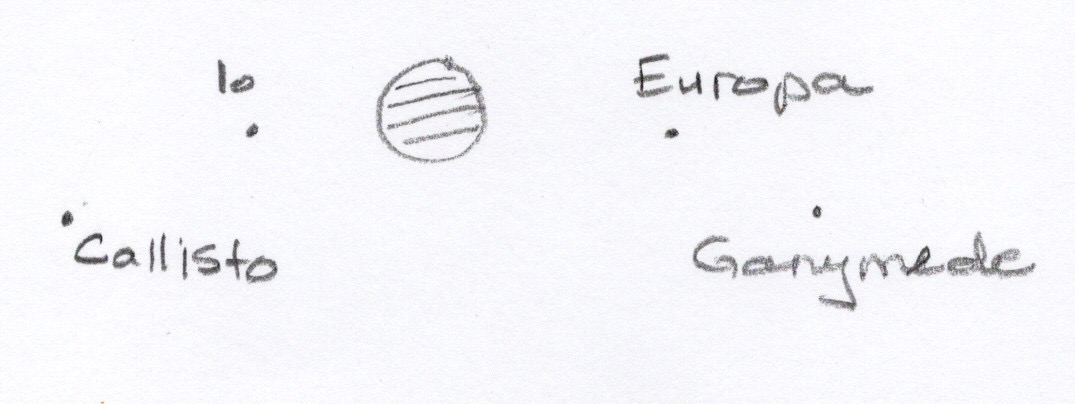 Io
Europa
Callisto
Ganymede